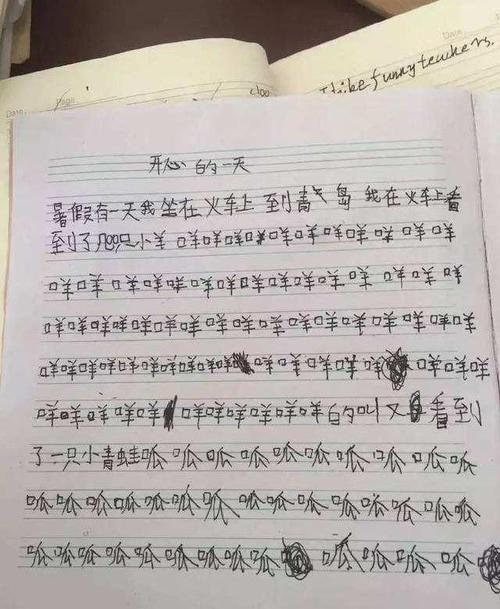 Date
Page
I like funny teachers.
开心的一天
暑假有一天我坐在火车上到青岛我在火车上看
到了700只小羊咩咩咩咩咩咩咩咩咩咩咩咩
咩咩咩咩咩咩咩咩咩咩咩咩咩咩咩
咩咩咩咩咩咩咩咩咩咩咩咩咩咩咩咩咩咩
咩咩咩咩咩咩咩咩咩咩咩咩咩咩咩咩咩咩
咩咩咩咩咩咩咩咩咩咩咩的叫又看到
了一只小青蛙呱呱呱呱呱呱呱呱呱呱
呱呱呱呱呱呱呱呱呱呱呱呱呱呱呱
呱呱呱呱呱呱呱呱呱呱呱呱呱